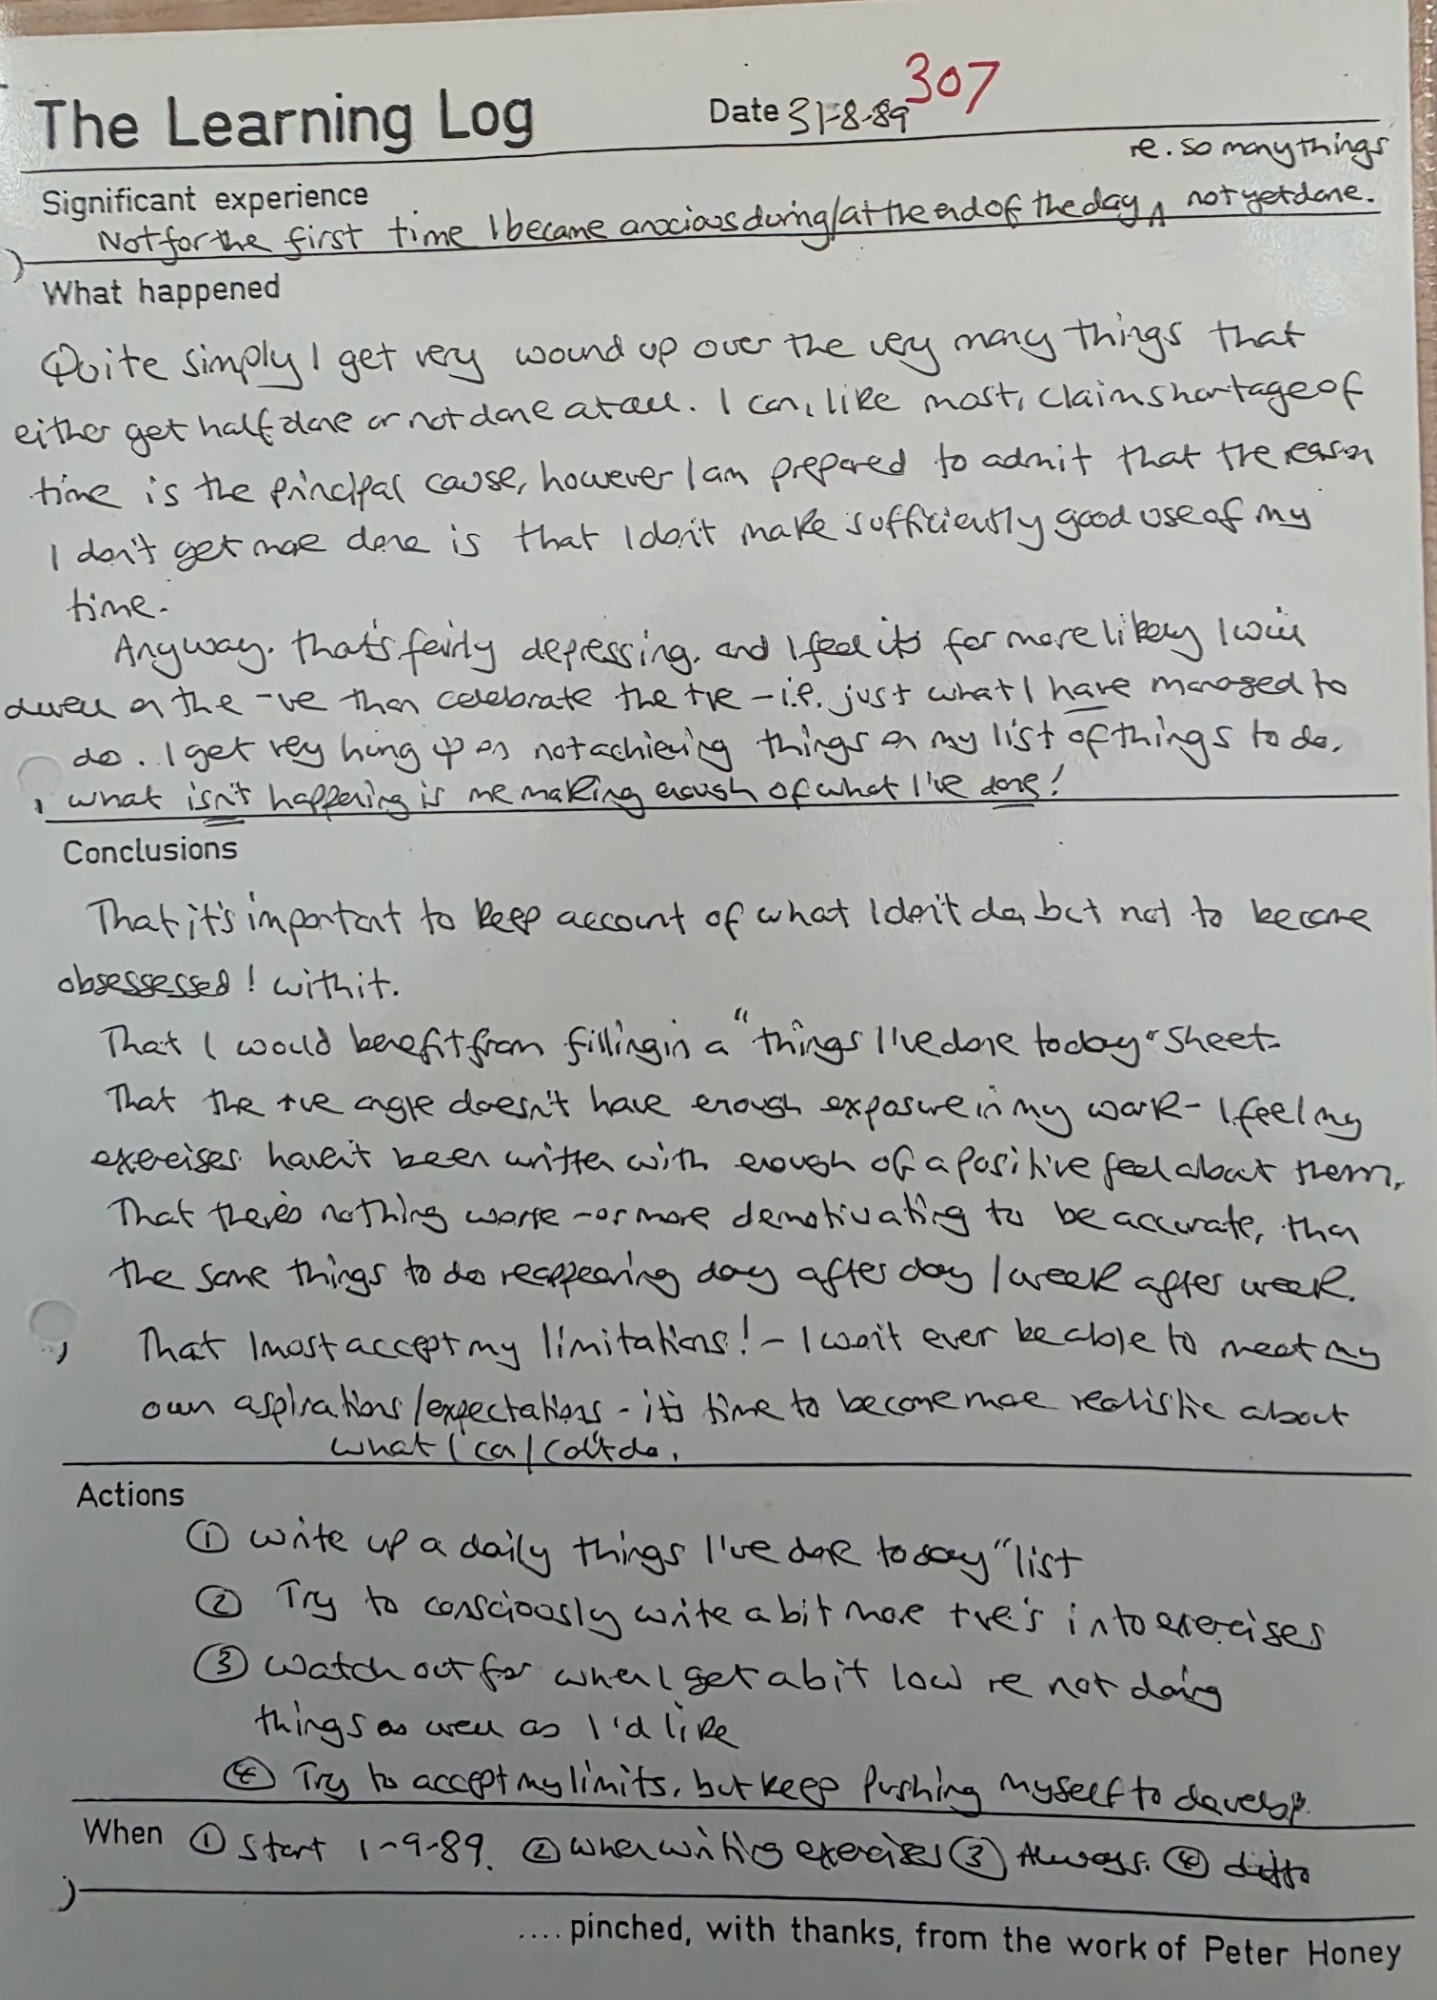 The Learning Log
Date 31-8-89 307
re. so many things
Significant experience
Not for the first time I became anxious during/at the end of the day ^ not yet done.
What happened
Quite simply I get very wound up over the very many things that
either get half done or not done at all. I can, like most, claim shortage of
time is the principal cause, however I am prepared to admit that the reason
I don't get more done is that I don't make sufficiently good use of my
time.
Anyway. that's fairly depressing. and I feel it's far more likely I will
dwell on the -ve than celebrate the +ve - i.e. just what I have managed to
do. I get very hung up on not achieving things on my list of things to do.
what isn't happening is me making enough of what I've done!
Conclusions
That it's important to keep account of what I don't do, but not to become
obsessessed! with it.
That I would benefit from filling in a "things I've done today" sheet.
That the +ve angle doesn't have enough exposure in my work - I feel my
exercises haven't been written with enough of a positive feel about them.
That there's nothing worse - or more demotivating to be accurate, than
the same things to do reappearing day after day / week after week.
That I must accept my limitations! - I won't ever be able to meet my
own aspirations/expectations - it's time to become more realistic about
what I can/can't do.
Actions
① Write up a daily things I've done today" list
② Try to consciously write a bit more +ve's into exercises
③ Watch out for when I get a bit low re not doing
things as well as I'd like
④ Try to accept my limits, but keep pushing myself to develop.
When ① Start 1-9-89. ② when writing exercises ③ Always. ④ ditto
.... pinched, with thanks, from the work of Peter Honey